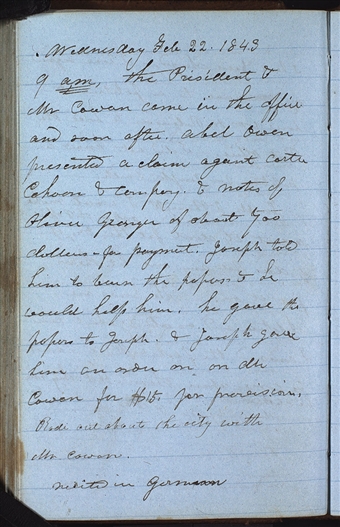 Wednesday Feb 22. 1843
9 am, the President &
Mr Cowan came in the office
and soon after. Abel Owen
presented a claim against Carter
Cahoon & company. & notes of
Oliver Granger of about 700
dollers - for payment. Joseph told
him to burn the papers & he
would help him. he gave the
papers to Joseph. & Joseph gave
him an order on on Mr
Cowan for $15. for provision.
Rode out about the city with
Mr Cowan.
recited in German